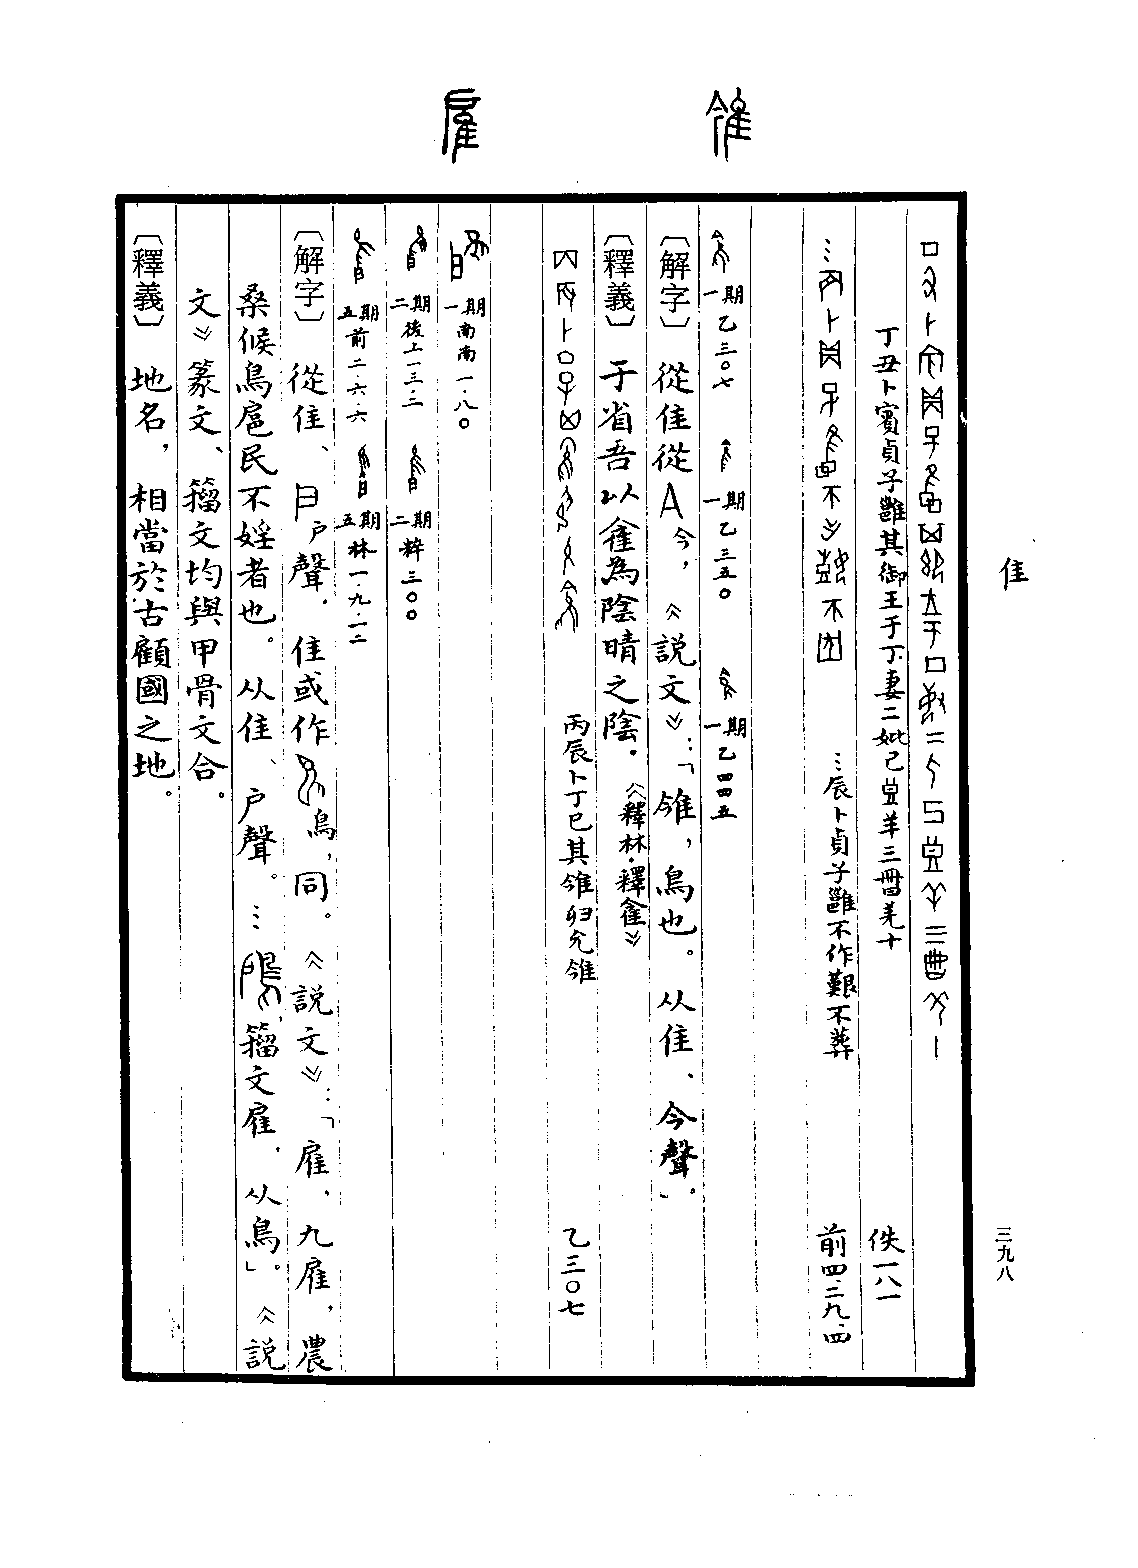 隹
三九八
丁丑卜賓貞子雝其御王于丁妻二妣己𠅤羊三𠕋羌十
佚一八一
⋮辰卜貞子雝不作艱不葬
前四·二九·四
雂
一期乙三〇七
一期乙三五〇
一期乙四四五
〔解字〕從隹從今，《說文》：「雂，鳥也。从隹、今聲。」
〔釋義〕于省吾以雂為陰晴之陰。《釋林·釋雂》
丙辰卜丁巳其雂印允雂
乙三〇七
雇
一期南南一·八〇
二期後上一三·二
二期粹三〇〇
五期前二·六·六
五期林一·九·一二
〔解字〕從隹、戶聲。隹或作鳥，同。《說文》：「雇，九雇，農
桑候鳥扈民不婬者也。从隹、戶聲。⋮籀文雇，从鳥」。《說
文》篆文、籀文均與甲骨文合。
〔釋義〕地名，相當於古顧國之地。